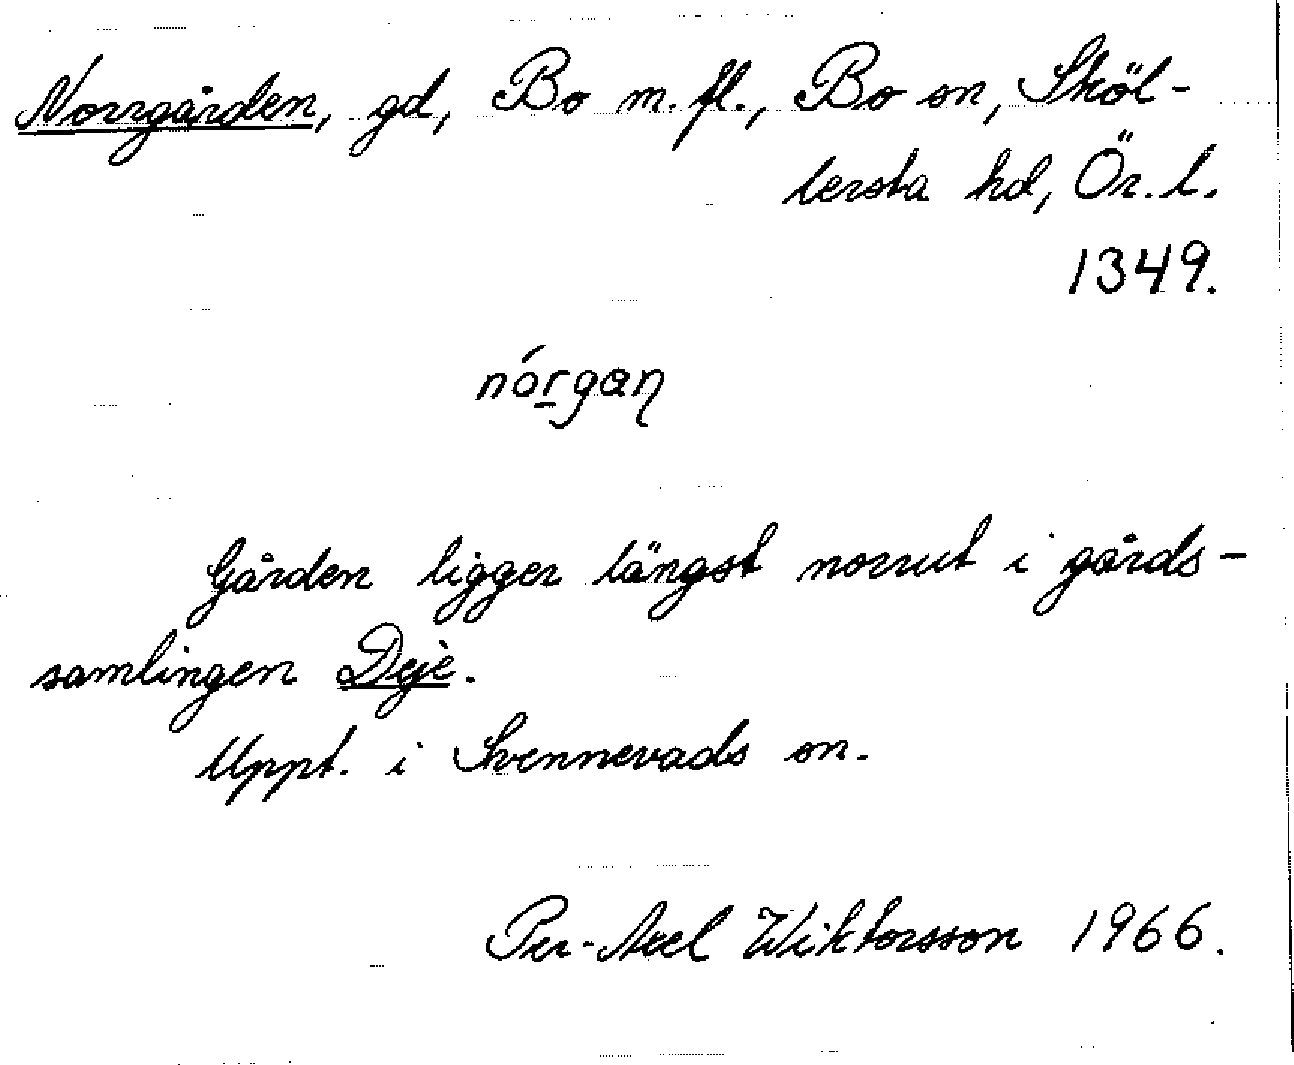 Norrgården, gd, Bo m. fl., Bo sn, Sköl-
lersta hd, Ör. l.
1349.
nórgaɳ
Gården ligger längst norrut i gårds-
samlingen Deje.
Uppt. i Svennevads sn.
Per-Axel Wiktorsson 1966.